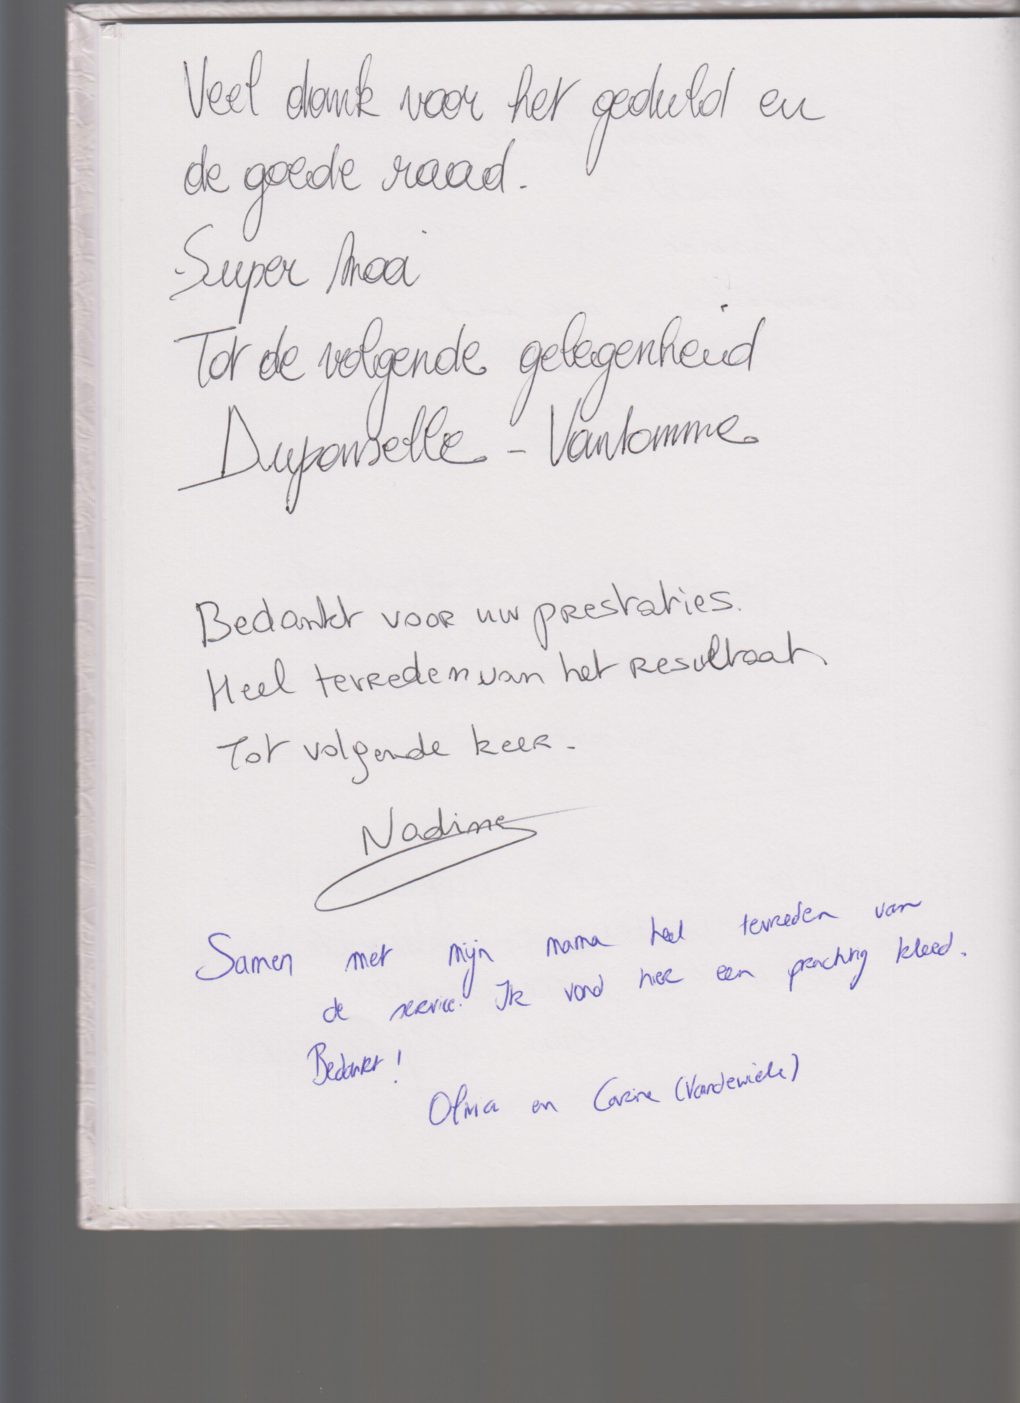 Veel dank voor het geduld en
de goede raad.
Super mooi
Tot de volgende gelegenheid
Duponselle - Vantomme
Bedankt voor uw prestaties.
Heel tevreden van het resultaat
Tot volgende keer.
Nadine
Samen met mijn mama heel tevreden van
de service. Ik vond hier een prachtig kleed.
Bedankt!
en Carine (Vandewiele)